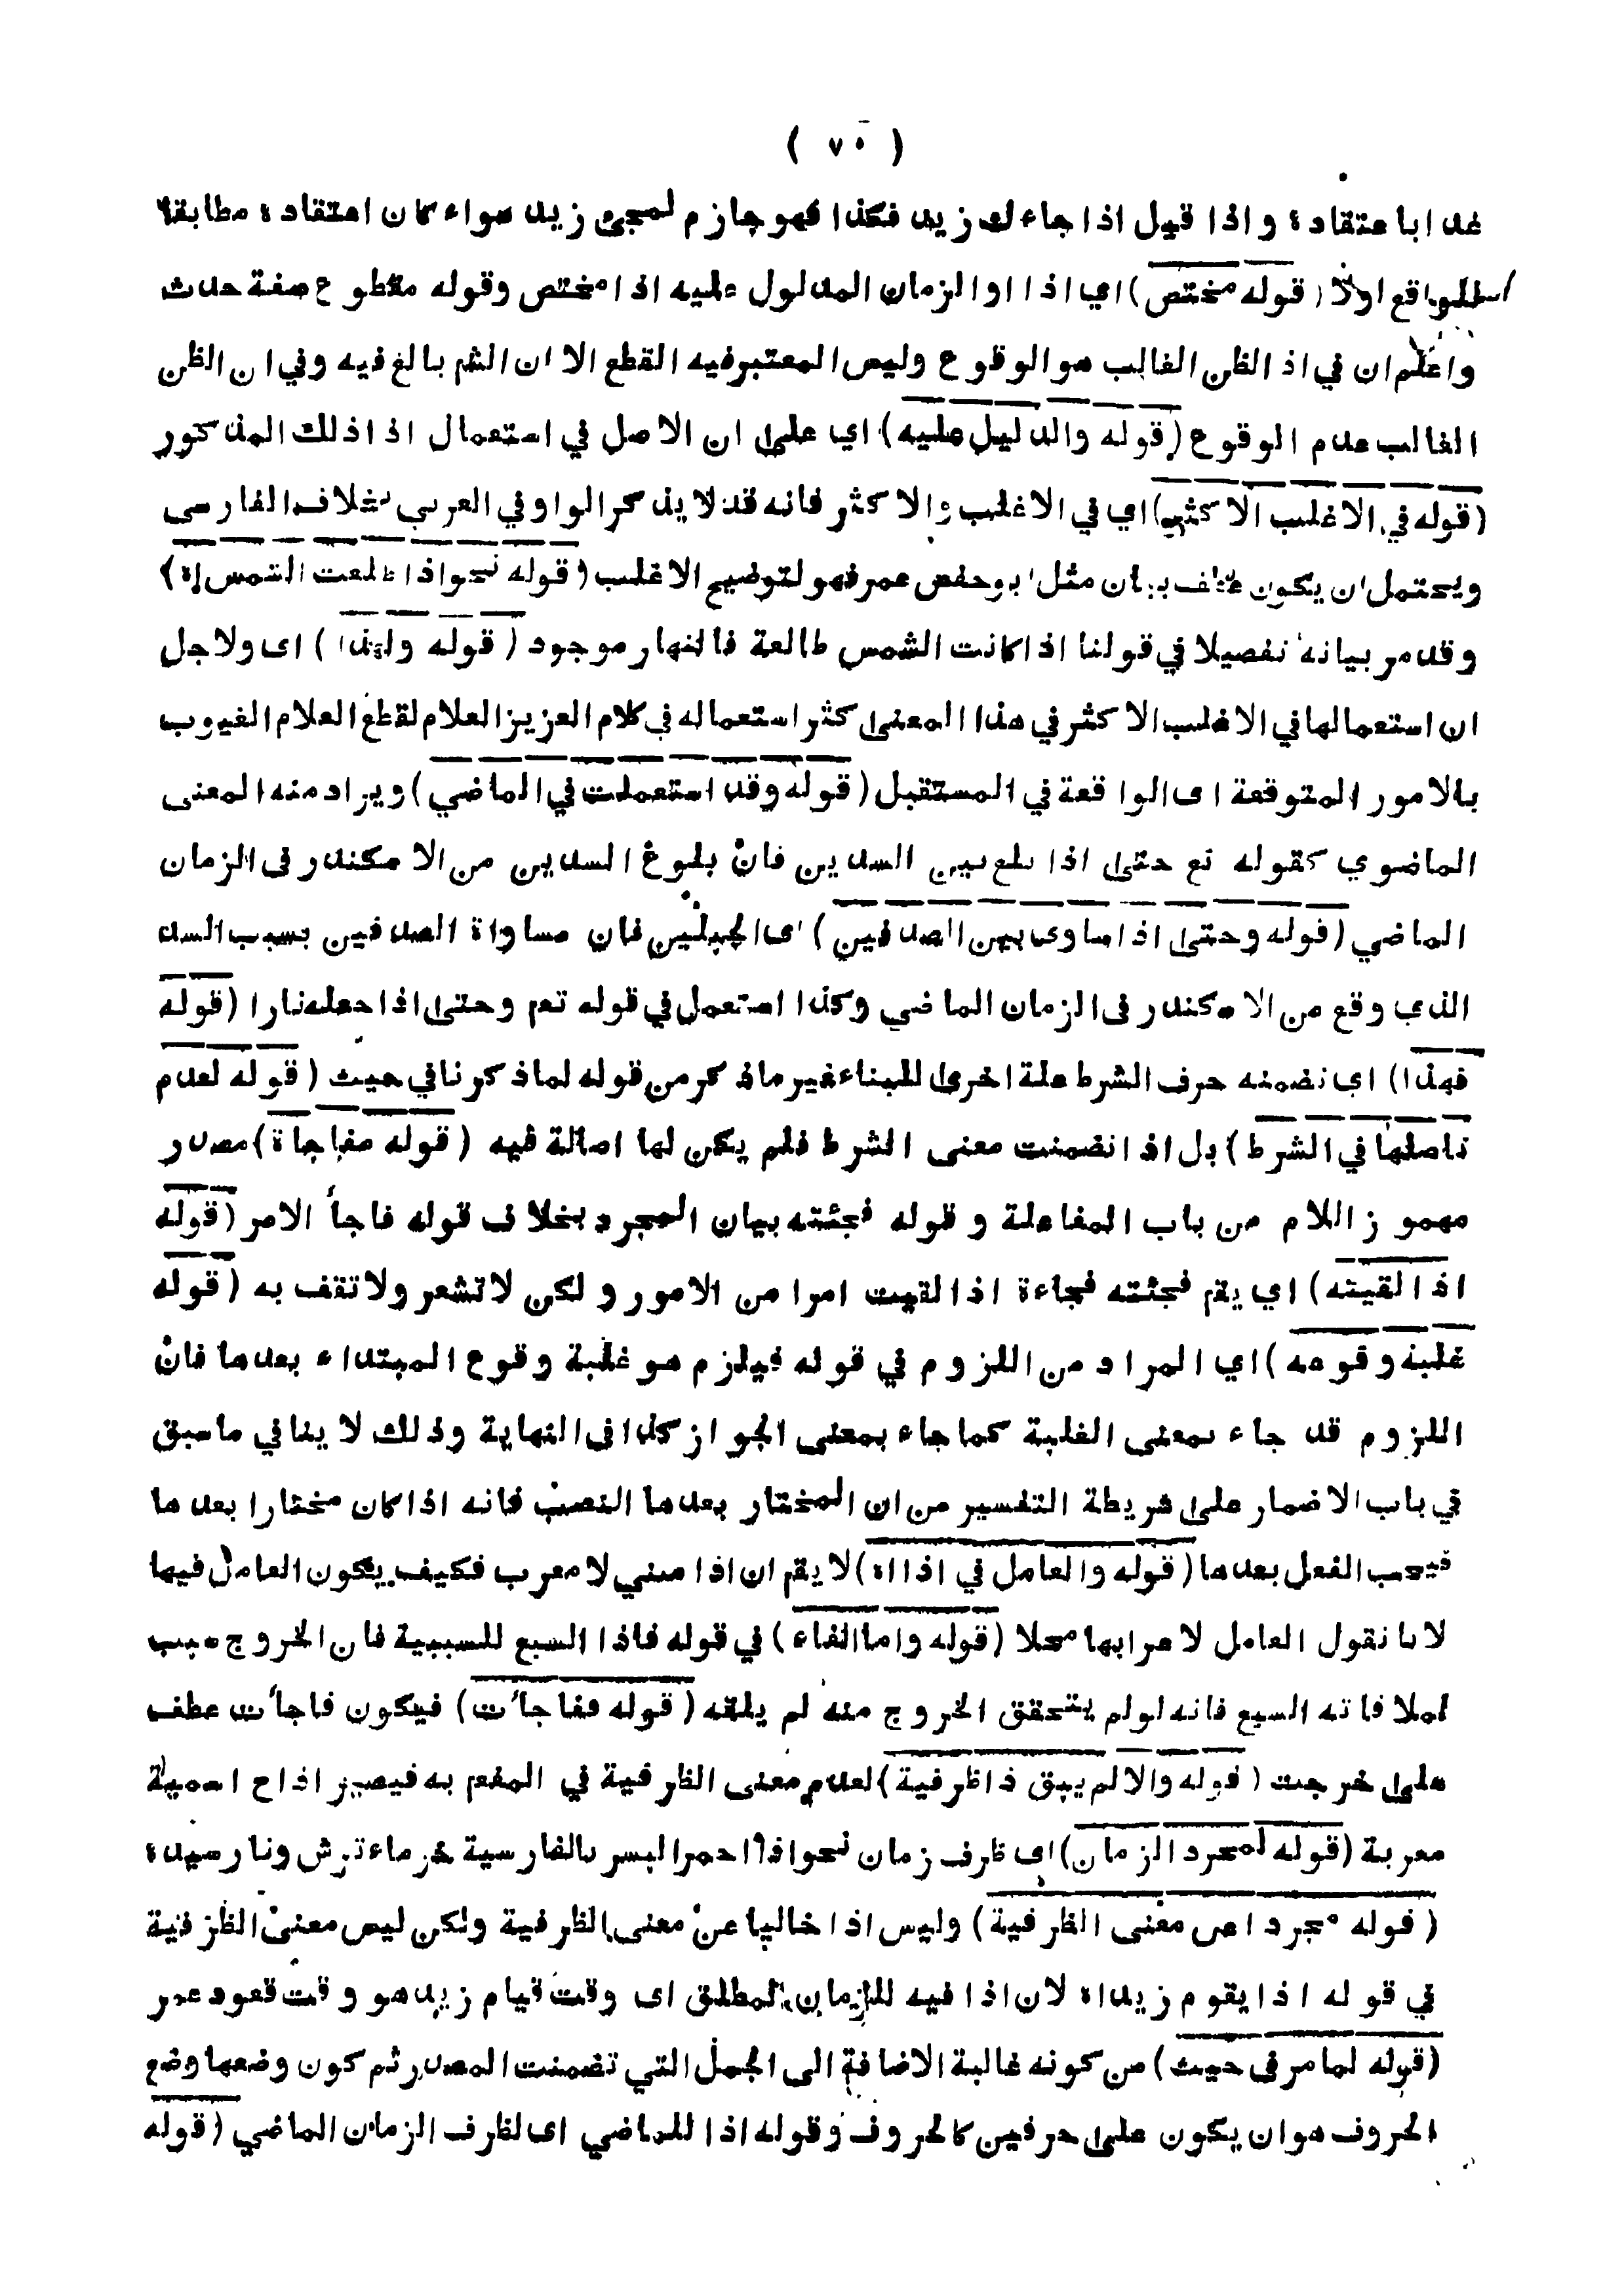 ( ٧٠ )
غدا باعتقاده واذا قيل اذا جاءك زيد فكذا فهو جازم لمجئ زيد سواء كان اعتقاده مطابقا
للواقع اولا (قوله مختص) اي اذا او الزمان المدلول عليه اذا مختص وقوله مقطوع صفة حدث
واعلم ان في اذ الظن الغالب هو الوقوع وليس المعتبر فيه القطع الا ان الشم بالغ فيه وفي ان الظن
الغالب عدم الوقوع (قوله والدليل عليه) اي على ان الاصل في استعمال اذا ذلك المذكور
(قوله في الاغلب الاكثر) اي في الاغلب والاكثر فانه قد لا يذكر الواو في العربي بخلاف الفارسي
ويحتمل ان يكون عطف بيان مثل ابو حفص عمر فهو لتوضيح الاغلب (قوله نحو اذا طلعت الشمس اه)
وقد مر بيانه تفصيلا في قولنا اذا كانت الشمس طالعة فالنهار موجود (قوله ولهذا) اى ولاجل
ان استعمالها في الاغلب الاكثر في هذا المعنى كثر استعماله في كلام العزيز العلام لقطع العلام الغيوب
بالامور المتوقعة اى الواقعة في المستقبل (قوله وقد استعملت في الماضي) ويراد منه المعنى
الماضوي كقوله تع حتى اذا بلغ بين السدين فان بلوغ السدين من الاسكندر فى الزمان
الماضي (قوله وحتى اذا ساوى بين الصدفين) اى الجبلين فان مساواة الصدفين بسبب السد
الذي وقع من الاسكندر فى الزمان الماضي وكذا استعمل في قوله تعم وحتى اذا جعله نارا (قوله
فهذا) اي تضمنه حرف الشرط علة اخرى للبناء غير ما ذكر من قوله لما ذكرنا في حيث (قوله لعدم
تاصلها في الشرط) بل اذا تضمنت معنى الشرط فلم يكن لها اصالة فيه (قوله مفاجاة) مصدر
مهموز اللام من باب المفاعلة وقوله فجئته بيان المجرد بخلاف قوله فاجأ الامر (قوله
اذا لقيته) اي يقم فجئته فجاءة اذا لقيت امرا من الامور ولكن لا تشعر ولا تقف به (قوله
غلبة وقوعه) اي المراد من اللزوم في قوله فيلزم هو غلبة وقوع المبتداء بعدها فان
اللزوم قد جاء بمعنى الغلبة كما جاء بمعنى الجواز كذا فى النهاية وذلك لا ينافي ما سبق
في باب الاضمار على شريطة التفسير من ان المختار بعدها النصب فانه اذا كان مختارا بعدها
فيجب الفعل بعدها (قوله والعامل في اذا اه) لا يقم ان اذا مبني لا معرب فكيف يكون العامل فيها
لانا نقول العامل لاعرابها محلا (قوله واما الفاء) في قوله فاذا السبع للسببية فان الخروج سبب
لملاقاته السبع فانه لو لم يتحقق الخروج منه لم يلقه (قوله ففاجأت) فيكون فاجأت عطف
على خرجت (قوله والا لم يبق ذا ظرفية) لعدم معنى الظرفية في المفعم به فيصير اذا ح اسمية
معربة (قوله لمجرد الزمان) اى ظرف زمان نحو اذا احمر البسر بالفارسية خرماء ترش ونا رسيده
(قوله مجردا عن معنى الظرفية) وليس اذا خاليا عن معنى الظرفية ولكن ليس معنى الظرفية
في قوله اذا يقوم زيد اه لان اذا فيه للزمان المطلق اى وقت قيام زيد هو وقت قعود عمر
(قوله لما مر فى حيث) من كونه غالبة الاضافة الى الجمل التي تضمنت المصدر ثم كون وضعها وضع
الحروف هو ان يكون على حرفين كالحروف وقوله اذا للماضي اى لظرف الزمان الماضي (قوله